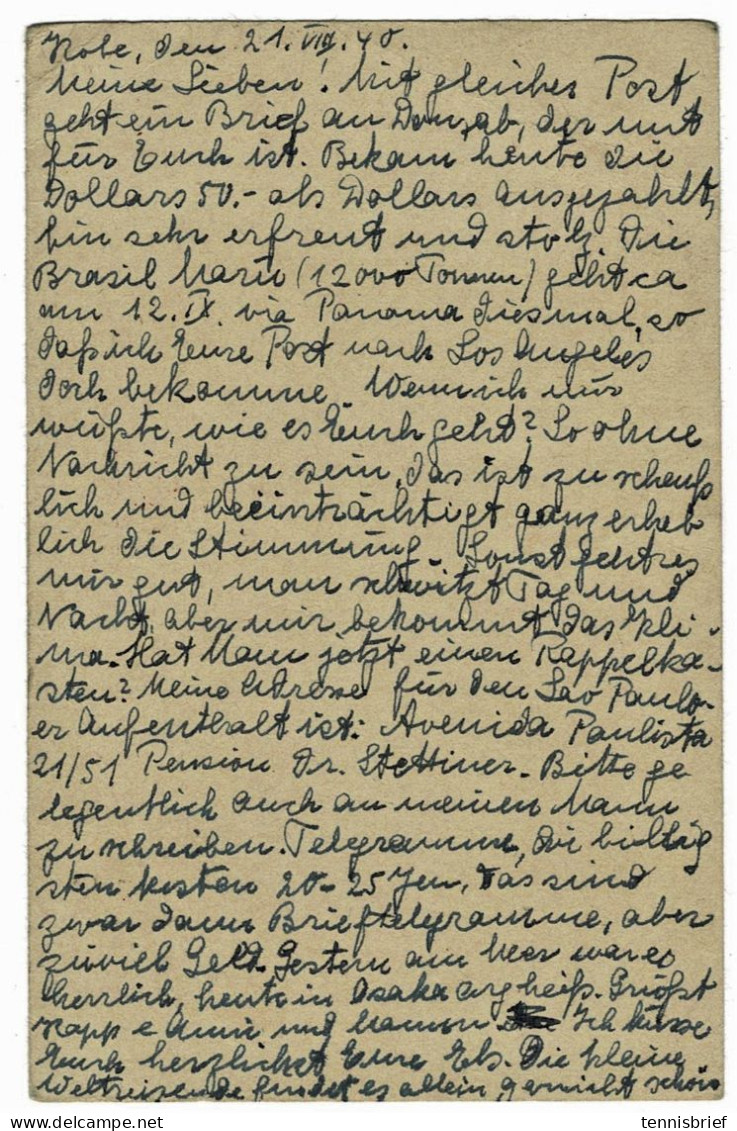 Kobe, den 21. VIII. 40.
Meine Lieben! Mit gleicher Post
geht ein Brief an ab, der mit
für Euch ist. Bekam heute die
Dollars 50.- als Dollars ausgezahlt,
bin sehr erfreut und stolz. Die
Brasil Maru (12000 Tonnen) geht ca
am 12. IX. via Panama diesmal, so
daß ich Eure Post nach Los Angeles
doch bekomme. Wenn ich nur
wüßte, wie es Euch geht? So ohne
Nachricht zu sein, das ist zu scheuß
lich und beeinträchtigt ganz erheb
lich die Stimmung. Sonst geht es
mir gut, man schwitzt Tag und
Nacht, aber mir bekommt das Kli-
ma. Hat Mam jetzt einen Rappelka-
sten? Meine Adresse für den Sao Paulo-
er Aufenthalt ist: Avenida Paulista
21/51 Pension Dr. Stettiner. Bitte ge
legentlich auch an meinen Mann
zu schreiben. Telegramme, die billig
sten kosten 20-25 Jen, das sind
zwar dann Brieftelegramme, aber
zuviel Geld. Gestern am Meer war es
herrlich, heute in Osaka arg heiß. Grüßt
und Ich küsse
Euch herzlichst Eure Els. Die kleine
Weltreisende findet es allein garnicht schön
tennisbrief